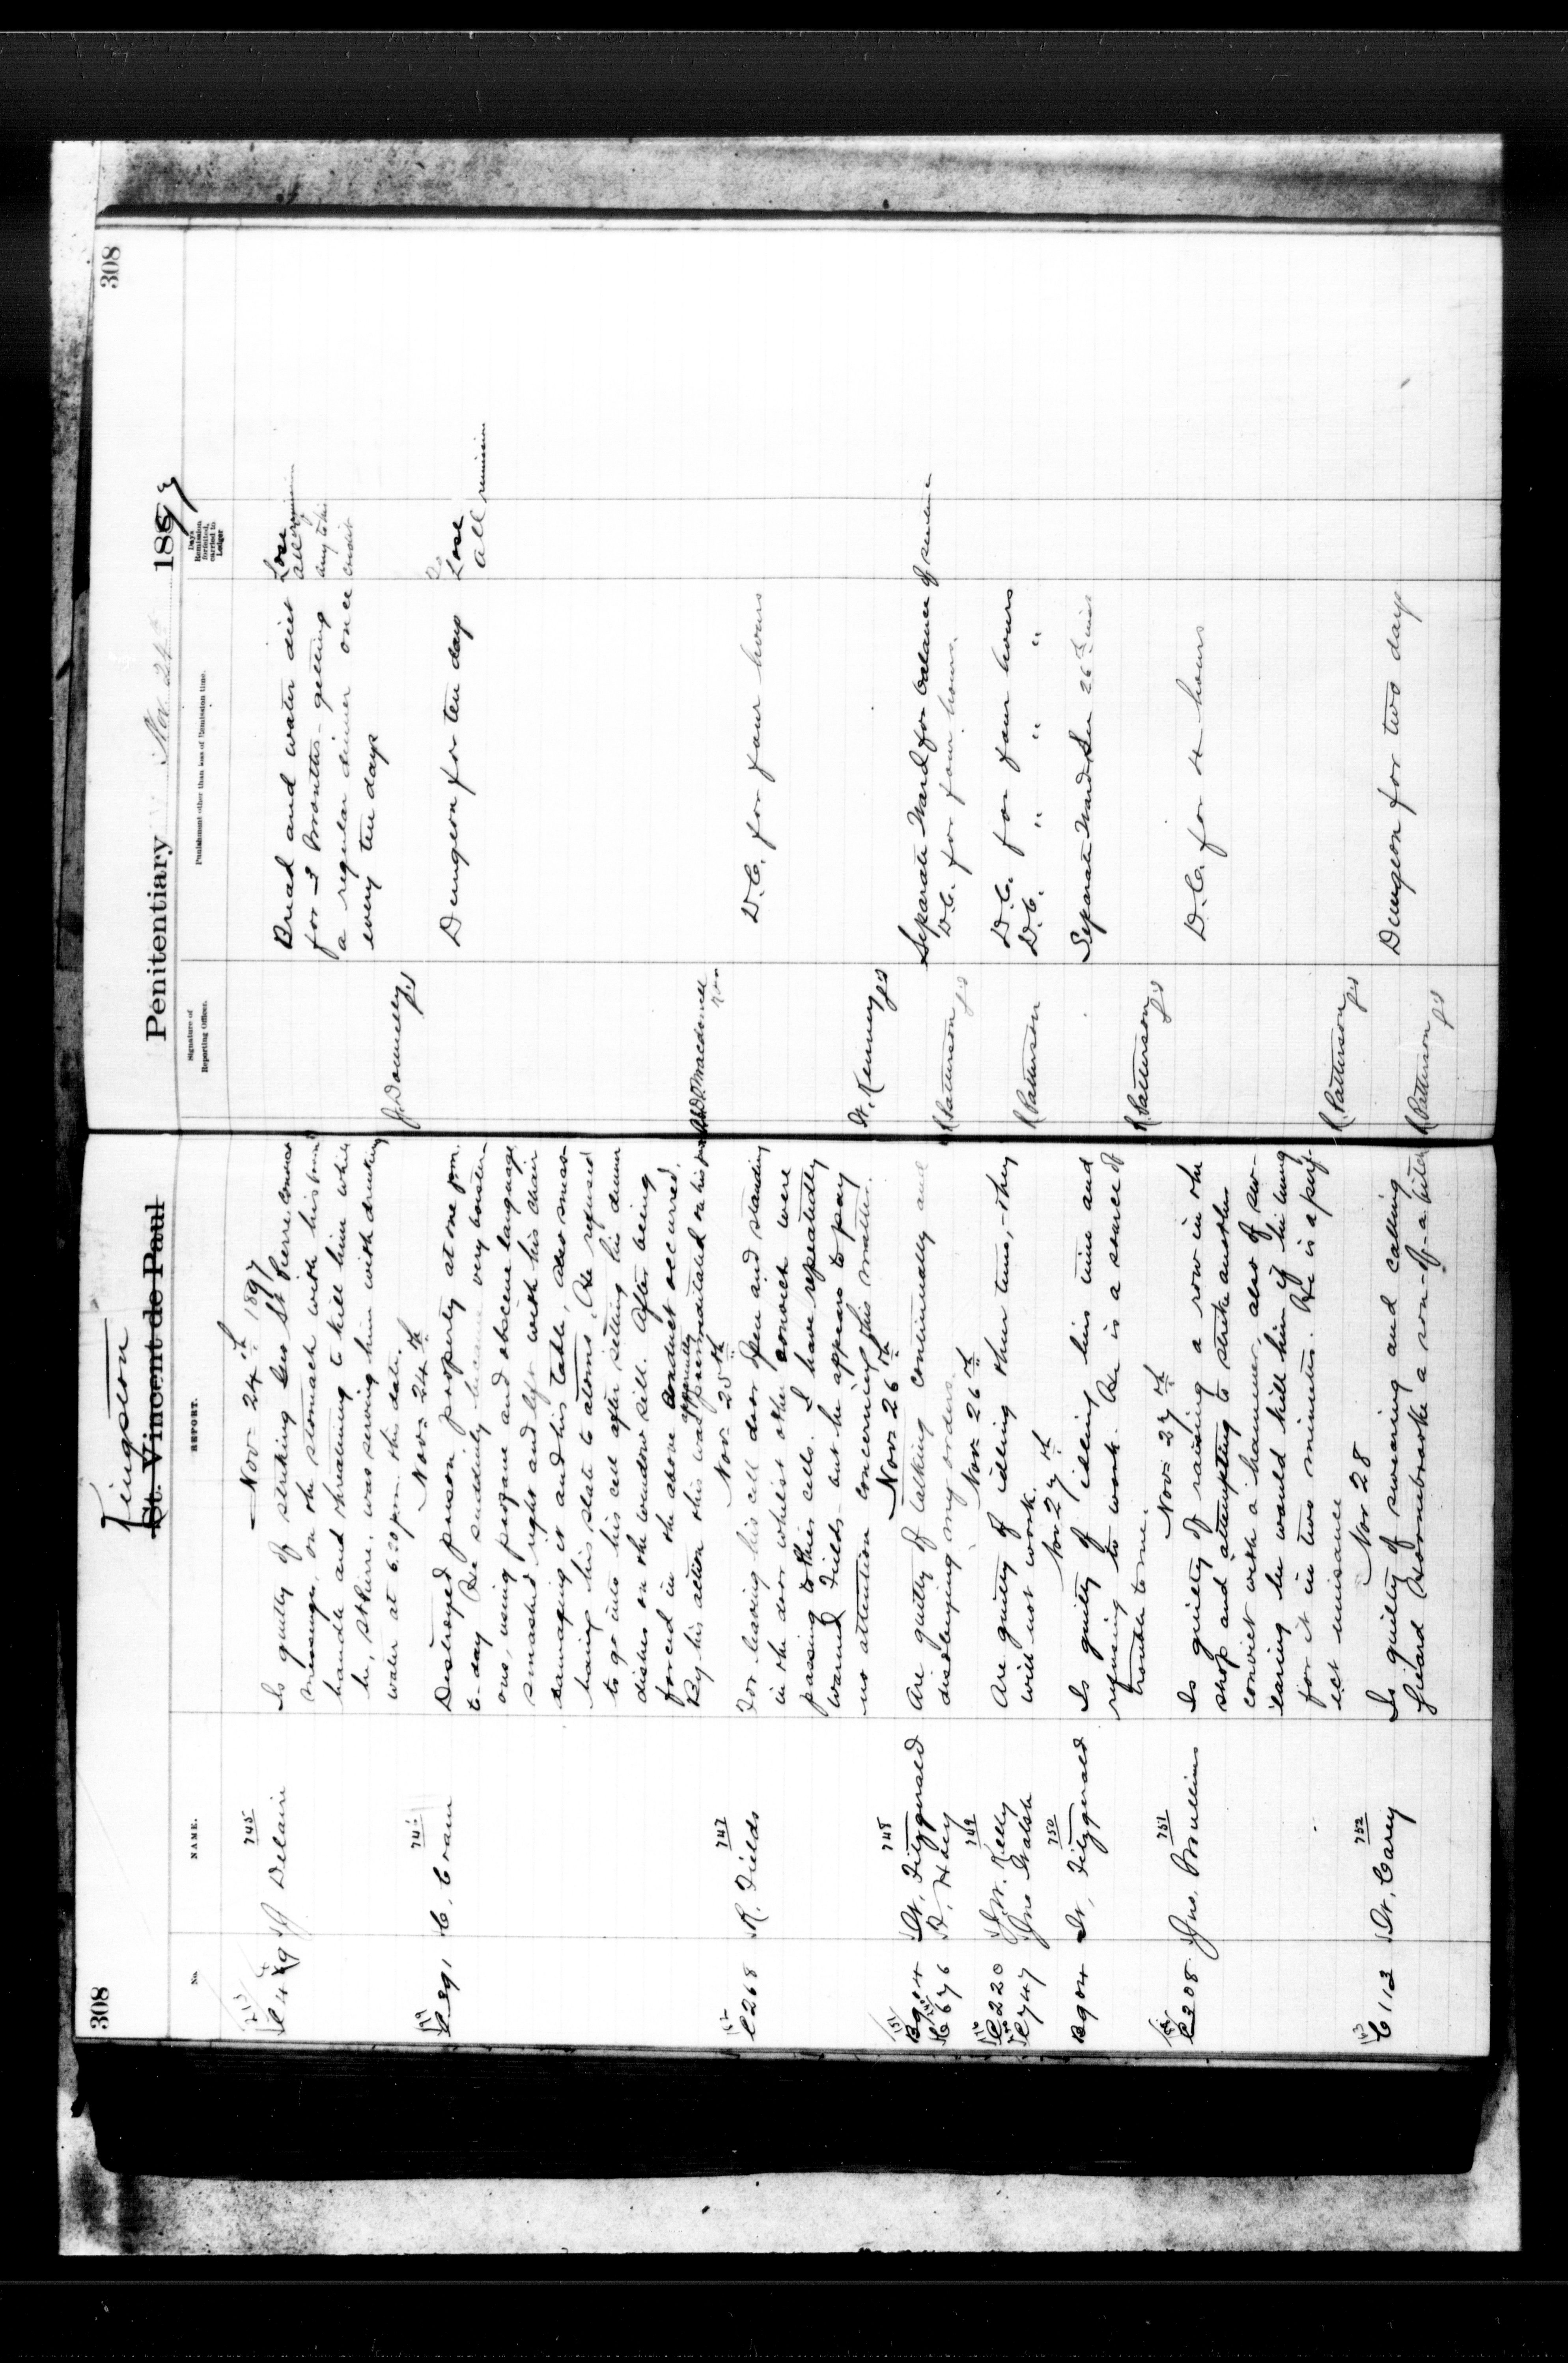 308
Kingston
St. Vincent de Paul
No.
NAME.
REPORT.
745
Nov- 24th 1897
Delaire
Is guilty of striking Geo St Pierre convict
messenger, on the stomach with his broom
handle and threatening to kill him while
he, St Pierre, was serving him with drinking
water at 6.20 p.m. this date.
746
Nov- 24th
C. Crain
Destroyed prison property at one p.m.
to-day He suddenly became very boister-
ous, using profane and obscene language
smashed right and left with his chair
damaging it and his table, also smash
ing his slate to atoms. He refused
to go into his cell after setting his dinner
dishes on the window sill. After being
forced in the above conduct occurred.
By his action this was apparently premeditated on his part
747
Nov- 25th
C268 R. Fields
For leaving his cell door open and standing
in the door whilst other convicts were
passing to thier cells. I have repeatedly
warned Fields but he appears to pay
no attention concerning this matter.
748
Nov- 26th
B904 Fitzgerald
C676
Are guilty of talking continually and
disobeying my orders.
749
Nov- 26th
C220 Kelly
C747 Jno Walsh
Are guilty of idling their time,- they
will not work.
750
Nov 27th
B904 Fitzgerald
Is guilty of idling his time and
refusing to work. He is a source of
trouble to me.
751
Nov- 27th
C308 Jno. Mullins
Is guilty of raising a row in the
shop and attempting to strike another
convict with a hammer, also of sw-
earing he would kill him if he hung
for it in two minutes. He is a perf-
ect nuisance
752
Nov 28
C113 Carey
Is guilty of swearing and calling
Hornebrooke a son-of-a-bitch
Penitentiary Nov. 24th 1897
308
Signature of
Reporting Officer.
Punishment other than loss of Remission time.
Days
Remission
forfeited,
carried to
Ledger
J. Donnelly
Bread and water diet
for 2 months- getting
a regular dinner once
every ten days
Lose
all remission
any to his
credit
Macdonell
Dungeon for ten days
Lose
all remission
Kenney
D.C. for four hours
R Patterson
Separate Ward for balance of sentence
D.C. for four hours.
R Patterson
D.C. for four hours
D.C. " " "
R. Patterson
Separate Ward See 26th inst
R. Patterson
D.C. for 4 hours
R Patterson
Dungeon for two days